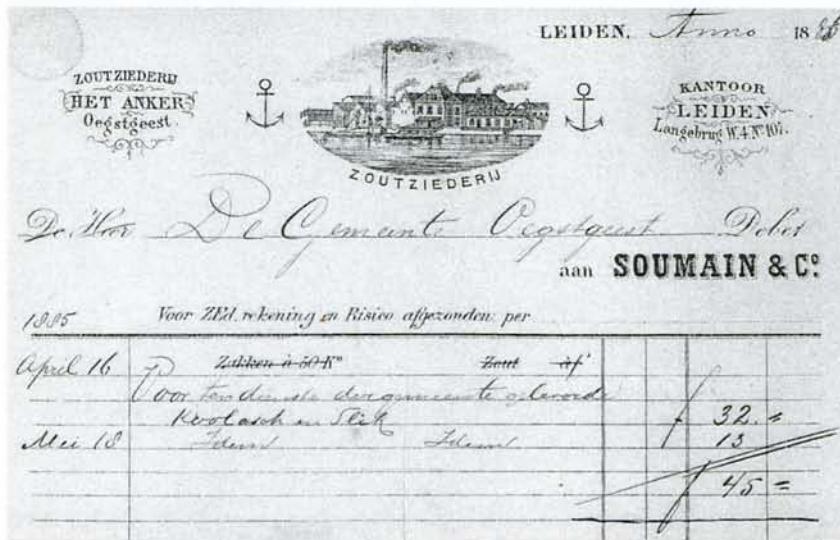 LEIDEN. Anno 1885
ZOUTZIEDERIJ
HET ANKER
Oegstgeest.
ZOUTZIEDERIJ
KANTOOR
LEIDEN
Langebrug W.4.No 107.
De Heer De Gemeente Oegstgeest Debet
aan SOUMAIN & Co
1885 Voor ZEd. rekening en Risico afgezonden per
April 16 Zakken à 50 Ko Zout à f
Voor ten dienste der gemeente geleverde
Koolasch en Slik f 32. =
Mei 18 Idem Idem 13
f 45 =